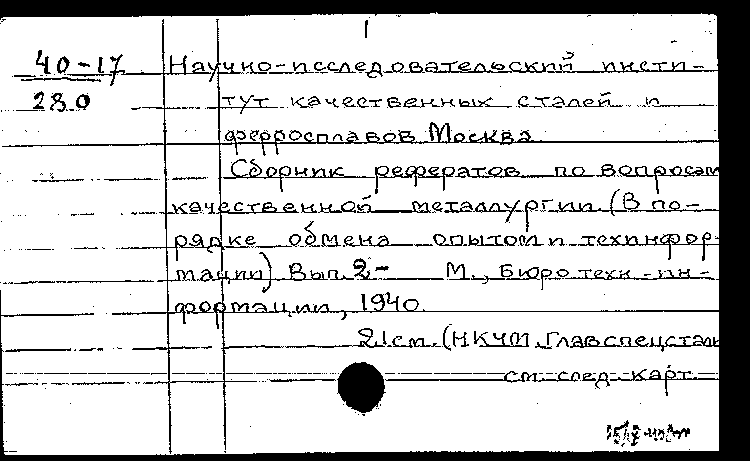 40-17 Научно-исследовательский инсти-
280 тут качественных сталей и
ферросплавов Москва.
Сборник рефератов по вопросам
качественной металлургии. (В по-
рядке обмена опытом и техинфор-
мации). Вып. 2- М., Бюро техн-ин-
формации, 1940.
21 см. (НКЧМ. Главспецсталь
см. след. карт.